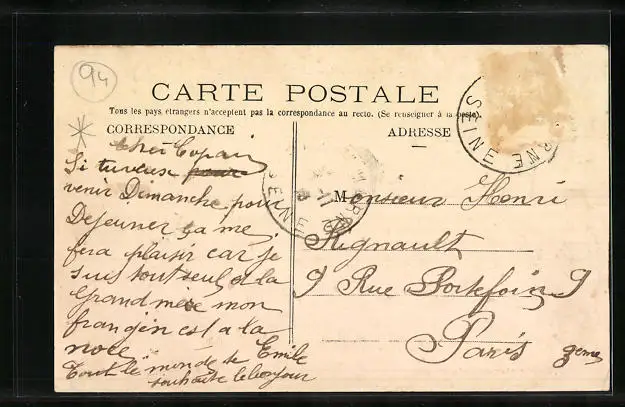 94
CARTE POSTALE
Tous les pays étrangers n'acceptent pas la correspondance au recto. (Se renseigner à la poste).
CORRESPONDANCE
ADRESSE
Cher Copain
Si tu veux pour
venir Dimanche pour
Dejeuner ça me
fera plaisir car je
suis tout seul a la
Grand mère mon
frangin est a la
noce Emile
Tout le monde te
souhaite le bonjour
Monsieur Henri
Rignault
9 Rue Portefoin 9
Paris 3eme
SEINE
SEINE